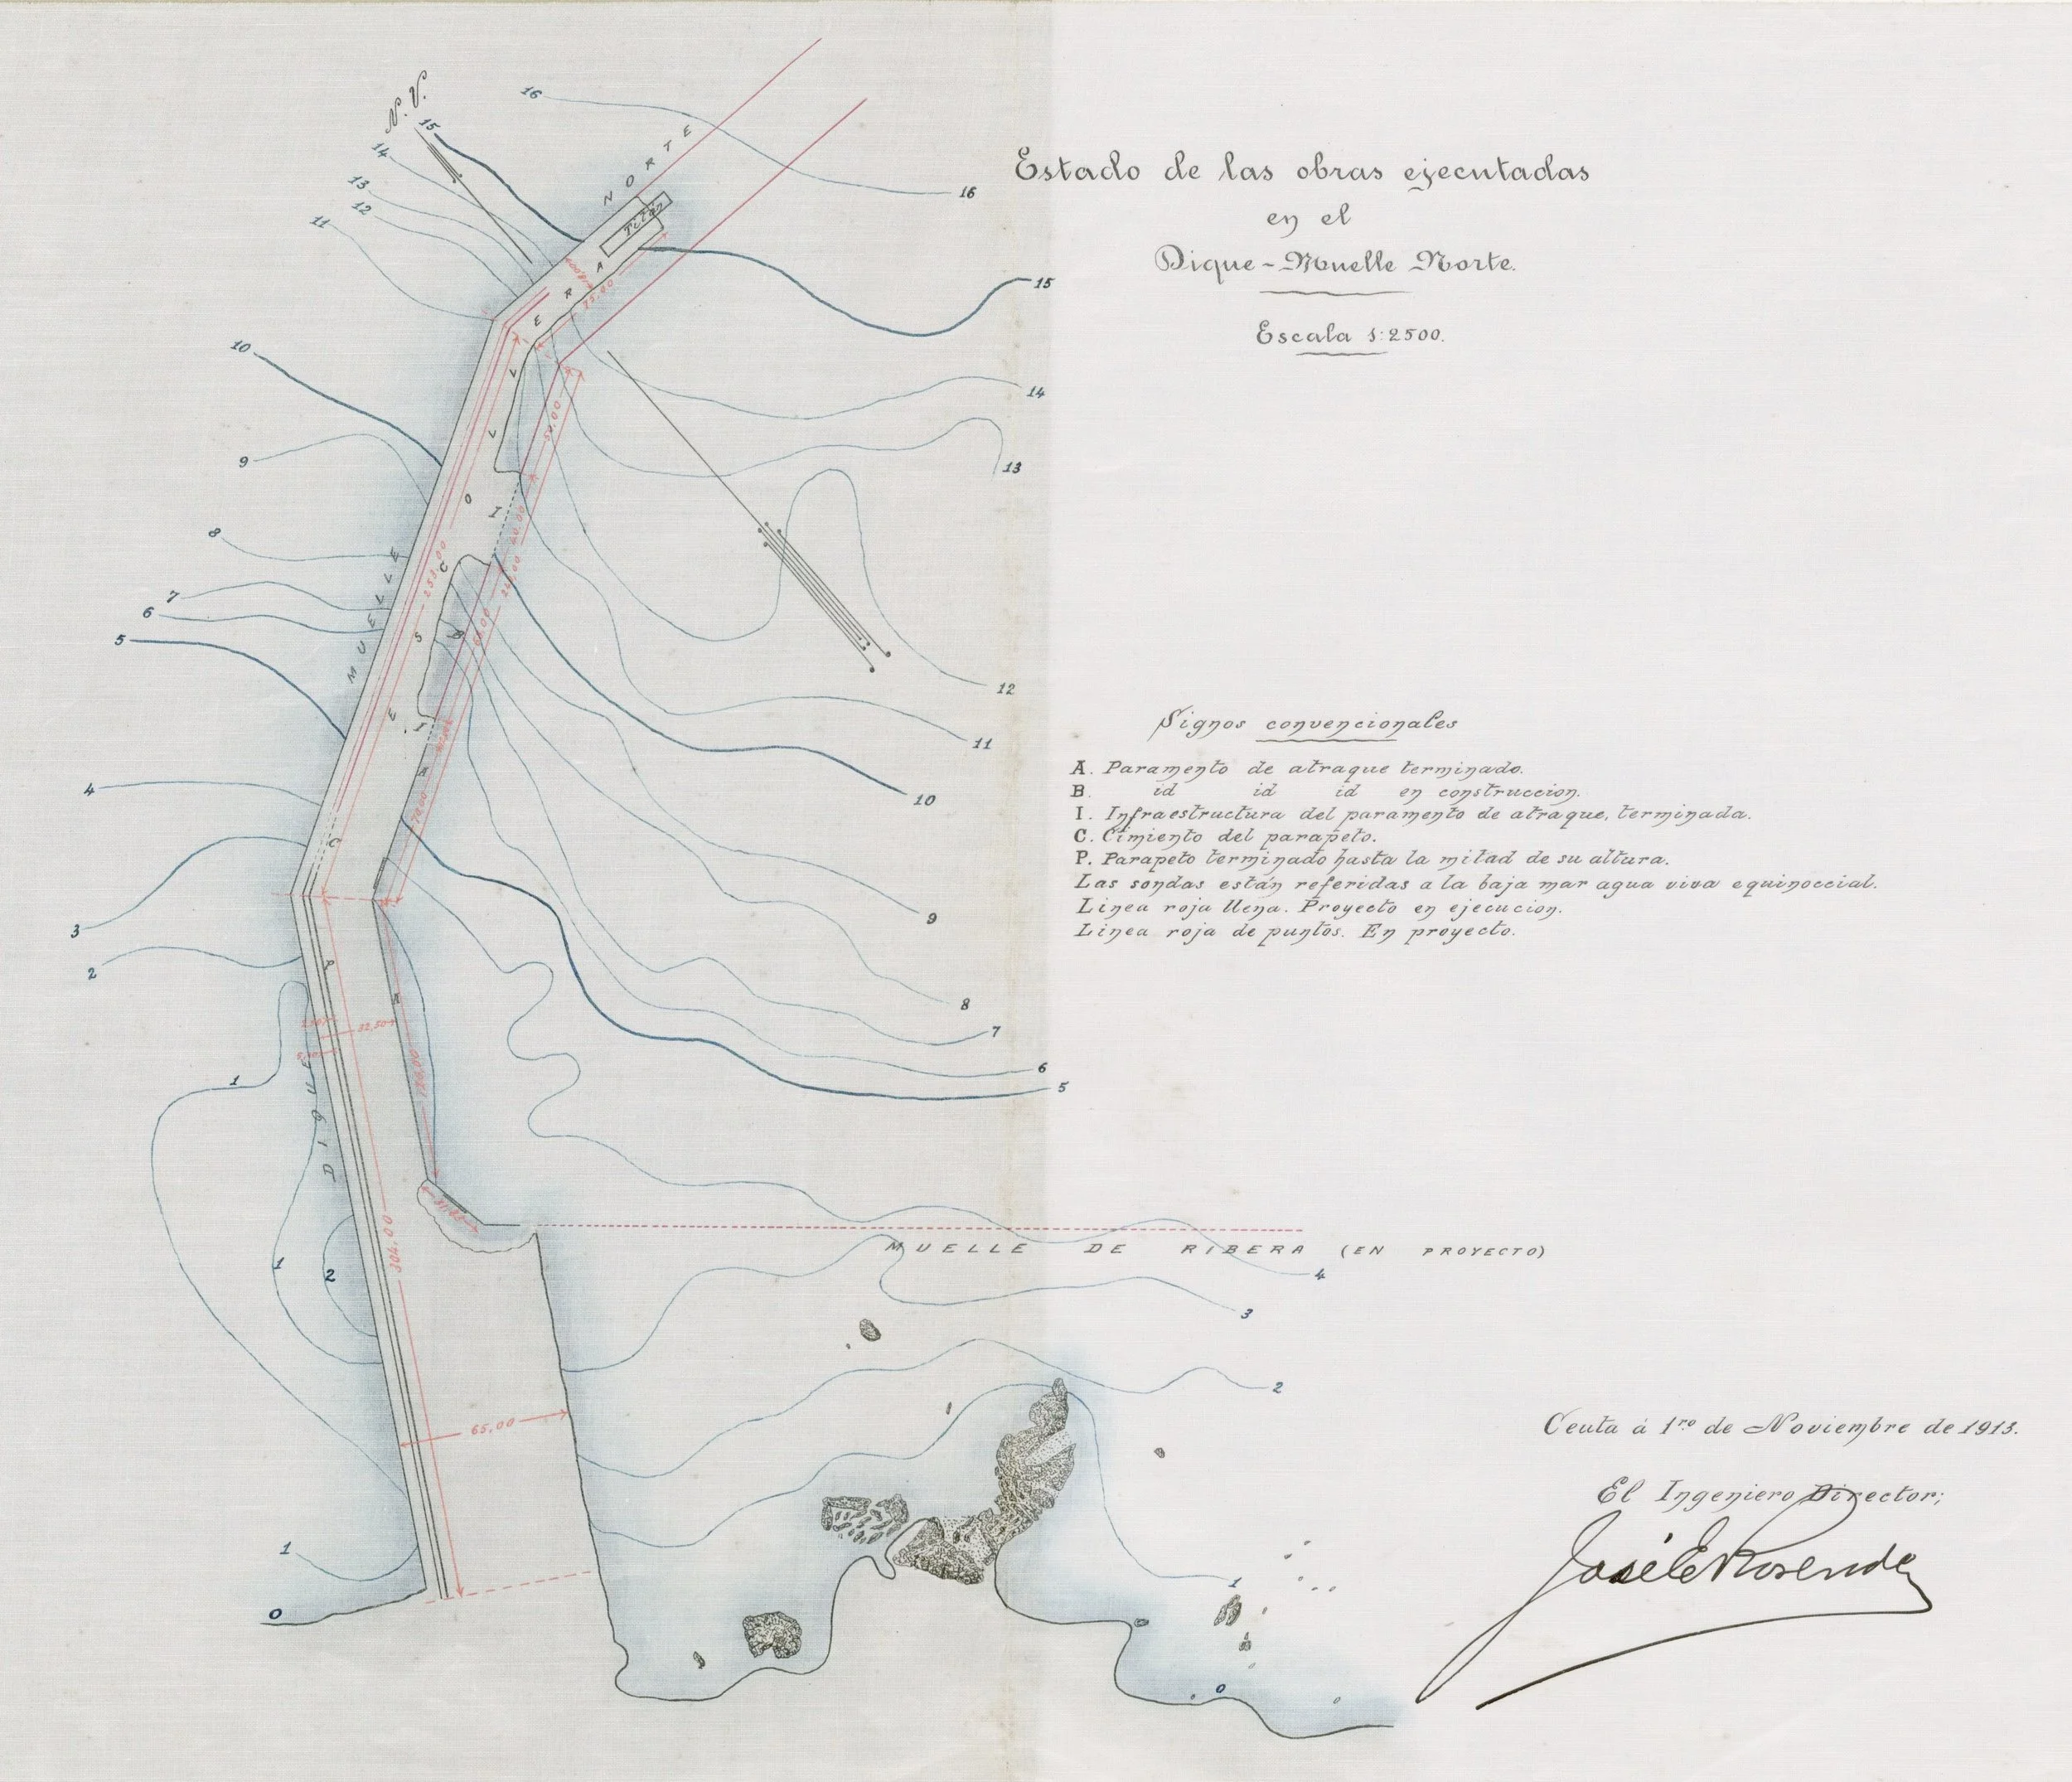 N. V.
16
15
14
13
12
11
NORTE
16
Titán
Estado de las obras ejecutadas
en el
Dique-Muelle Norte.
Escala 1:2500.
15
75,00
10
14
9
50,00
13
ESCOLLERA
I
8
40,00
253,00
C
7
6
5
MUELLE
B
12
I
11
4
A
10
70,00
C
3
9
2
P
A
8
7
32,50
6
1
5
120,00
DIQUE
MUELLE DE RIBERA (EN PROYECTO)
304,00
1
2
4
3
2
65,00
1
1
0
0
Signos convencionales
A. Paramento de atraque terminado.
B. id id id en construccion.
I. Infraestructura del paramento de atraque, terminada.
C. Cimiento del parapeto.
P. Parapeto terminado hasta la mitad de su altura.
Las sondas están referidas a la baja mar agua viva equinoccial.
Linea roja llena. Proyecto en ejecucion.
Linea roja de puntos. En proyecto.
Ceuta á 1ro de Noviembre de 1913.
El Ingeniero Director;
José E Rosende